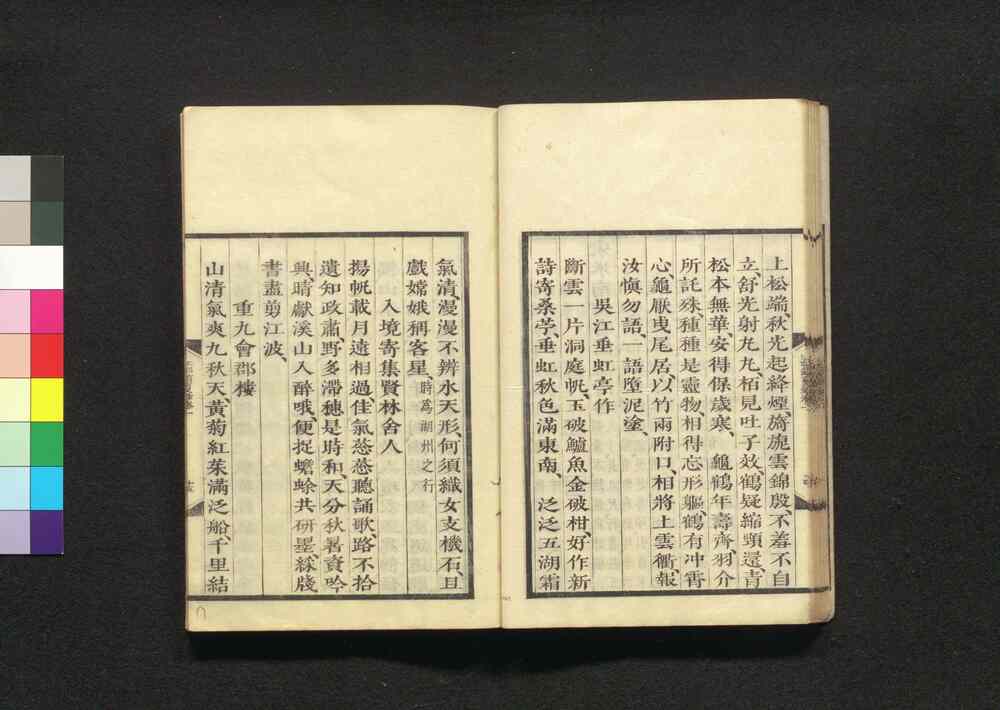 上松端、秋光起絳煙、旖旎雲錦殷、不羞不自
立、舒光射九九、栢見吐子效、鶴疑縮頸還、青
松本無華安得保歲寒、　龜鶴年壽齊、羽介
所託殊種種是靈物相得忘形軀、鶴有冲霄
心龜厭曳尾居、以竹兩附口、相將上雲衢、報
汝愼勿語、一語墮泥塗、
吳江垂虹亭作
斷雲一片洞庭帆、玉破鱸魚金破柑、好作新
詩寄桑苧、垂虹秋色滿東南、　泛泛五湖霜
氣清、漫漫不辨水天形、何須織女支機石、且
戲嫦娥稱客星、時爲湖州之行
入境寄集賢林舍人
揚帆載月遠相過、佳氣葱葱聽誦歌、路不拾
遺知政肅、野多滯穗是時和、天分秋暑資吟
興、晴獻溪山入醉哦、便捉蟾蜍共研墨、綵牋
書盡剪江波、
重九會郡樓
山清氣爽九秋天、黃菊紅茱滿泛船、千里結